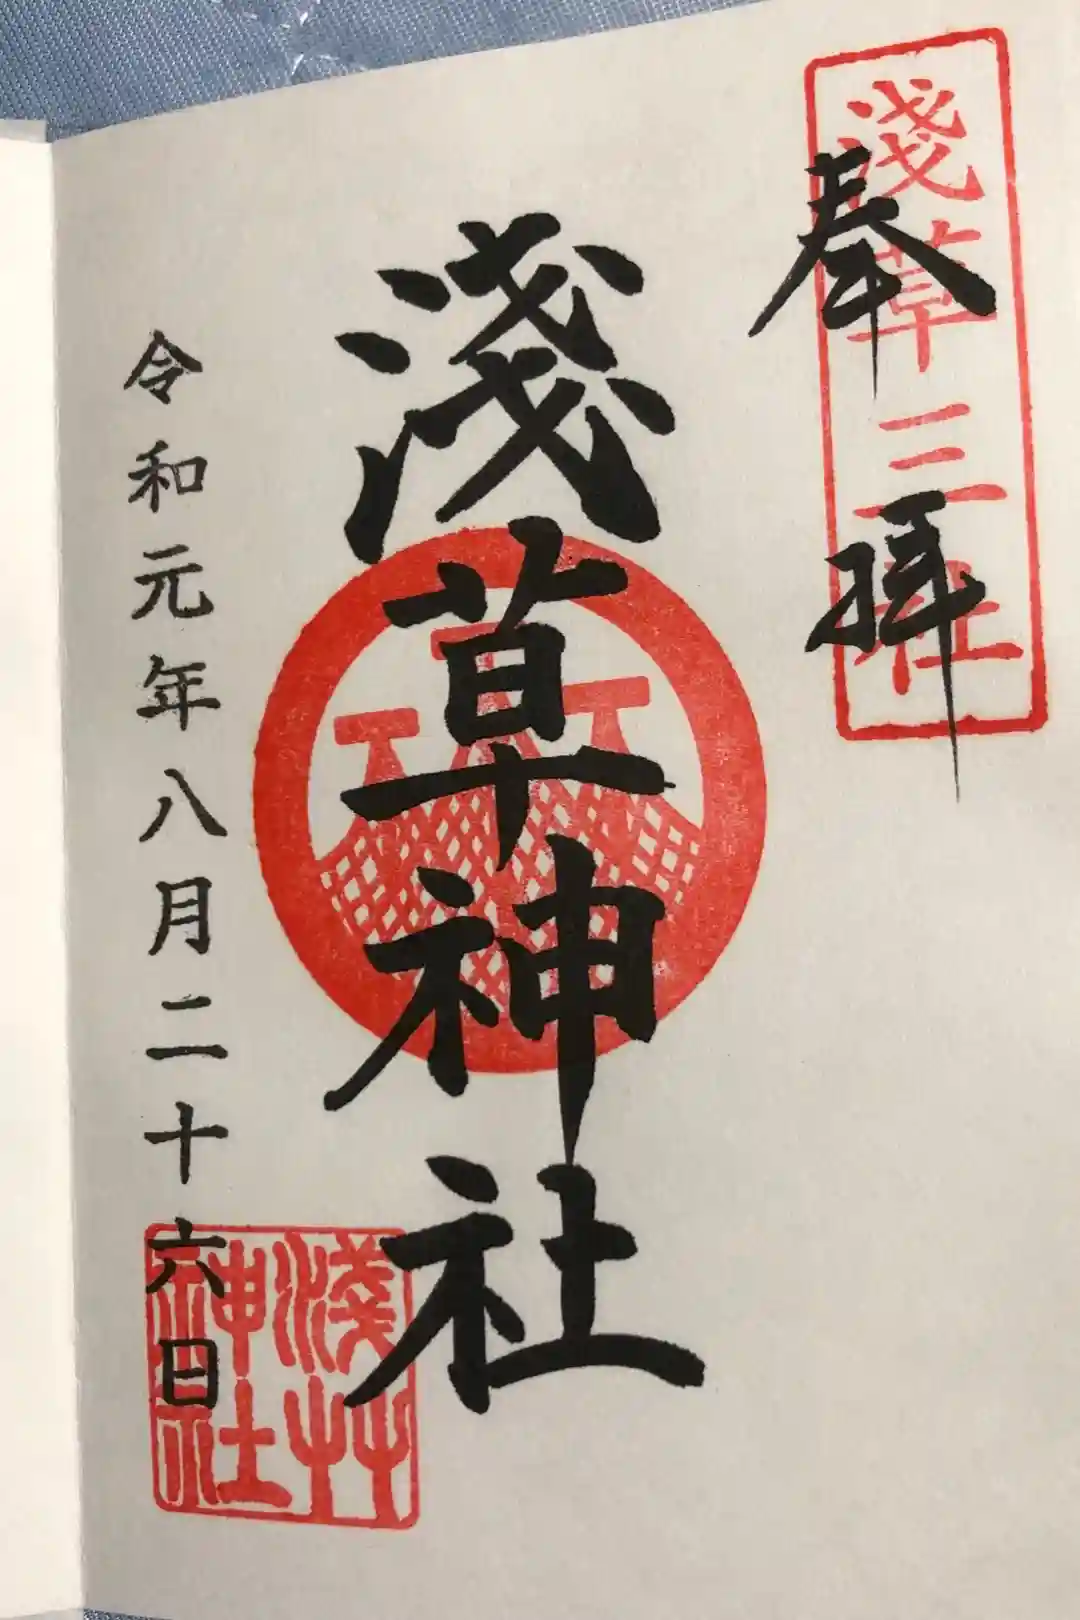 奉拝
淺草三社
淺草神社
令和元年八月二十六日
淺艸神社